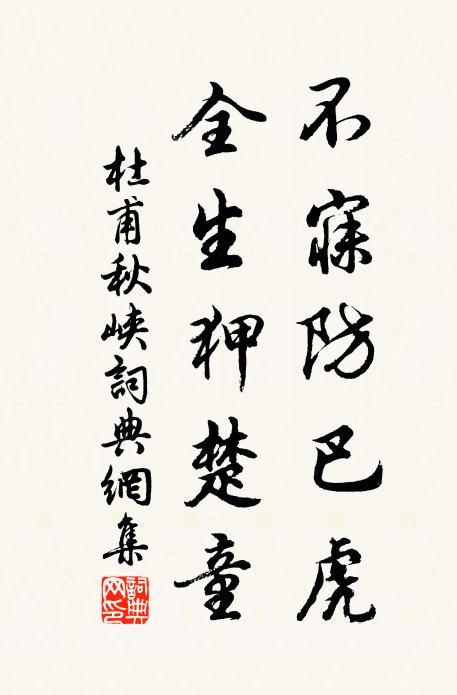 不寐防巴虎
全生狎楚童
杜甫秋峡詞典網集
詞典网印